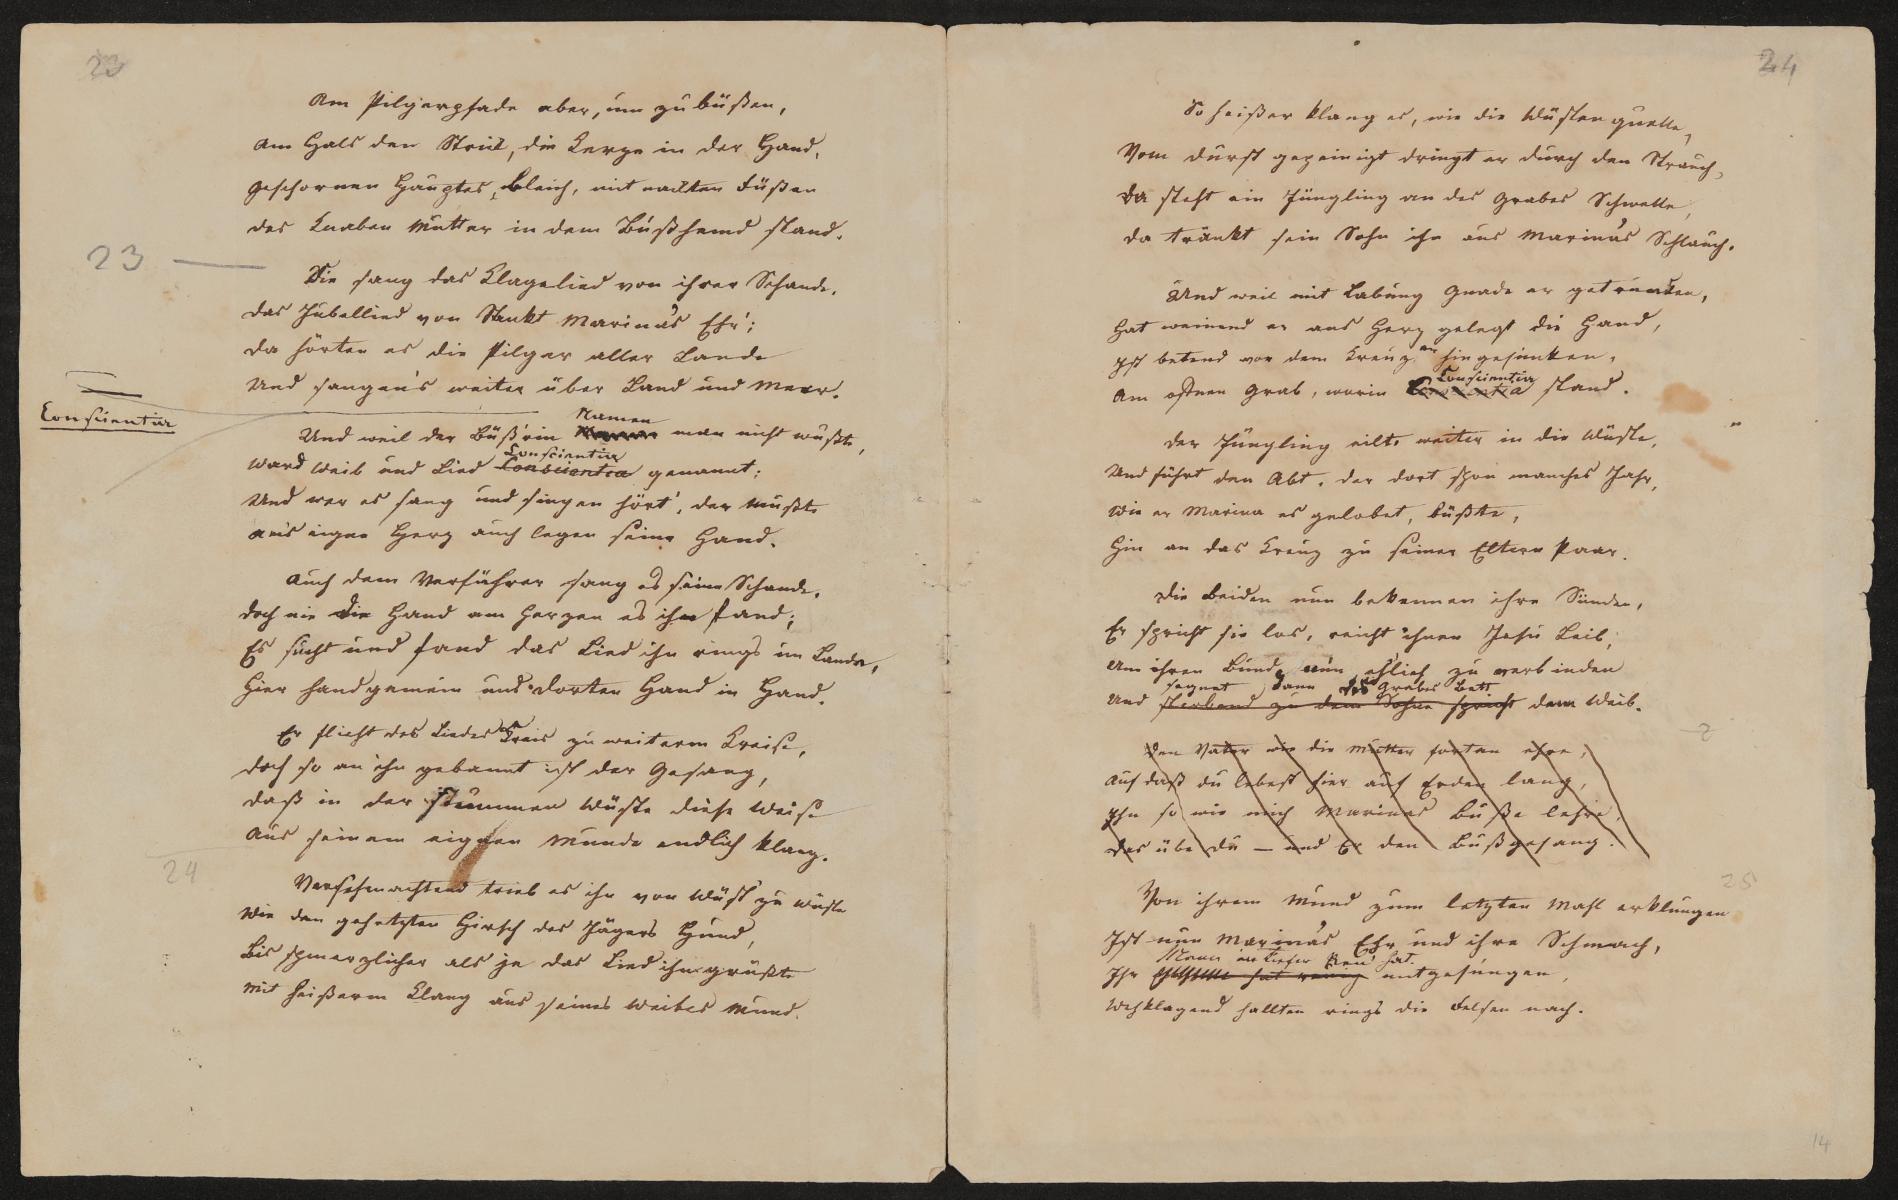 23
Am Pilgerpfade aber, um zu büßen,
Am Hals den Strick, die Kerze in der Hand,
Geschornen Hauptes, bleich, mit nackten Füßen
Des Knaben Mutter in dem Bußhemd stand.
23 —
Sie sang das Klagelied von ihrer Schande,
Das Jubellied von Sankt Marina's Ehr';
Da hörten es die Pilger aller Lande
Und sangen's weiter über Land und Meer.
Conscientia
Namen
Und weil der Büß'rin man nicht wußte,
Conscientia
Ward Weib und Lied Conscientia genannt;
Und wer es sang und singen hört', der mußte
Aufs eigne Herz auch legen seine Hand.
Auch dem Verführer sang es seine Schande,
Doch nie die Hand am Herzen es ihm fand;
Es sucht und fand das Lied ihn rings im Lande,
Hier handgemein und dorten Hand in Hand.
Er flieht des Liedes Kreis zu weiterm Kreise,
Doch so an ihn gebannt ist der Gesang,
Daß in der stummen Wüste diese Weise
Aus seinem eignen Munde endlich klang.
24
Verschmachtend trieb es ihn von Wüst' zu Wüste
Wie den gehetzten Hirsch des Jägers Hund,
Bis schmerzlicher als je das Lied ihn grüßte
Mit heißerm Klang aus seines Weibes Mund.
24
So heißer klang es, wie die Wüstenquelle,
Vom Durst gepeinigt dringt er durch den Strauch,
Da steht ein Jüngling an des Grabes Schwelle,
Da tränkt sein Sohn ihn aus Marina's Schlauch.
Und weil mit Labung Gnade er getrunken,
Hat weinend er ans Herz gelegt die Hand,
Ist betend vor dem Kreuz hingesunken,
Conscientia
Am offnen Grab, worin Conscientia stand.
Der Jüngling eilte weiter in die Wüste,
Und führt den Abt, der dort schon manches Jahr,
Wie er Marina es gelobet, büßte,
Hin an das Kreuz zu seiner Eltern Paar.
Die Beiden nun bekennen ihre Sünden,
Er spricht sie los, reicht ihnen Jesu Leib,
Um ihren Bund nun ehlich zu verbinden
segnet dann des Grabes Bett
Und sterbend zu dem Sohne spricht dem Weib.
2
Den Vater wie die Mutter fortan ehre,
Auf daß du lebest hier auf Erden lang,
Ihn so wie mich Marinas Buße lehre,
Das übe du — und Er den Bußgesang.
25
Von ihrem Mund zum letzten Mahl erklungen
Ist nun Marina's Ehr und ihre Schmach,
Mann in tiefer Reu' hat
Ihr hat entgesungen,
Wehklagend hallten rings die Felsen nach.
14